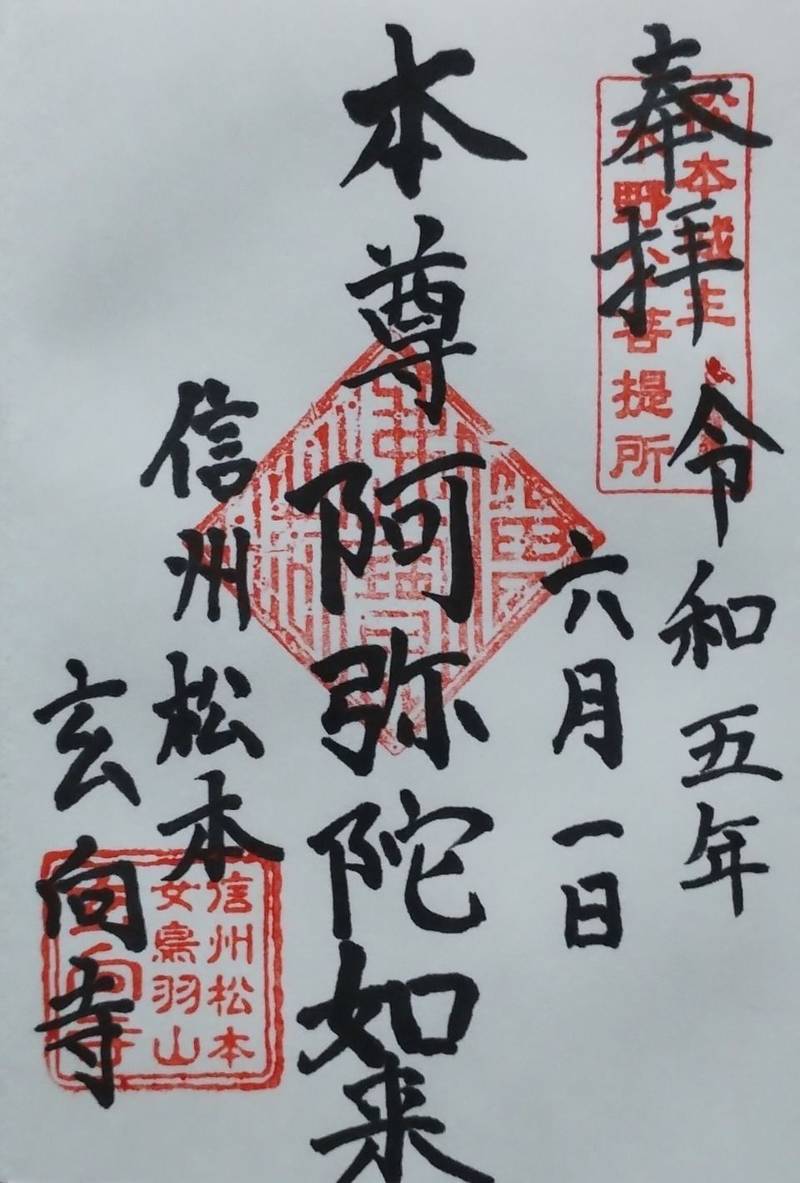 奉拝
令和五年
六月一日
本尊阿弥陀如来
信州松本
玄向寺
松本城主
水野公菩提所
信州松本
女鳥羽山
玄向寺